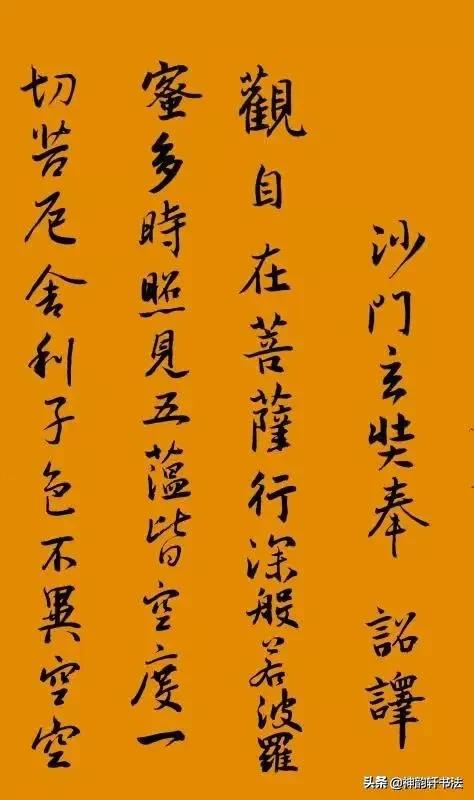 沙門玄奘奉 詔譯
觀自在菩薩行深般若波羅
蜜多時照見五蘊皆空度一
切苦厄舍利子色不異空空
头条 @神韵轩书法